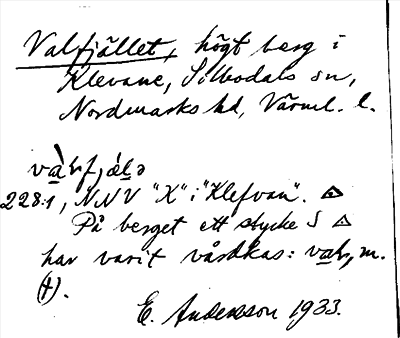 Valfjället, högt berg i
Klevane, Silbodals sn,
Nordmarks hd, Värml. l.
228:1, NNV "X" i "Klefvan". △
På berget ett stycke S △
har varit vårdkas: m.
(†).
E. Andersson 1933.